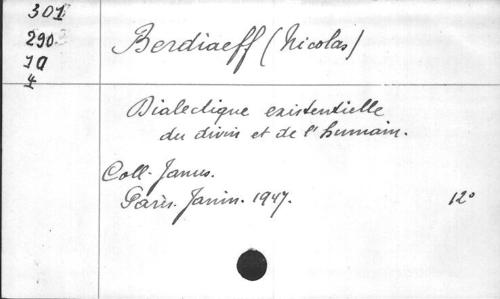 301
290
Ja
4
Berdiaeff (Nicolas)
Dialectique existentielle
du divin et de l'humain.
Coll. Janus.
Paris. Janin. 1947. 12°